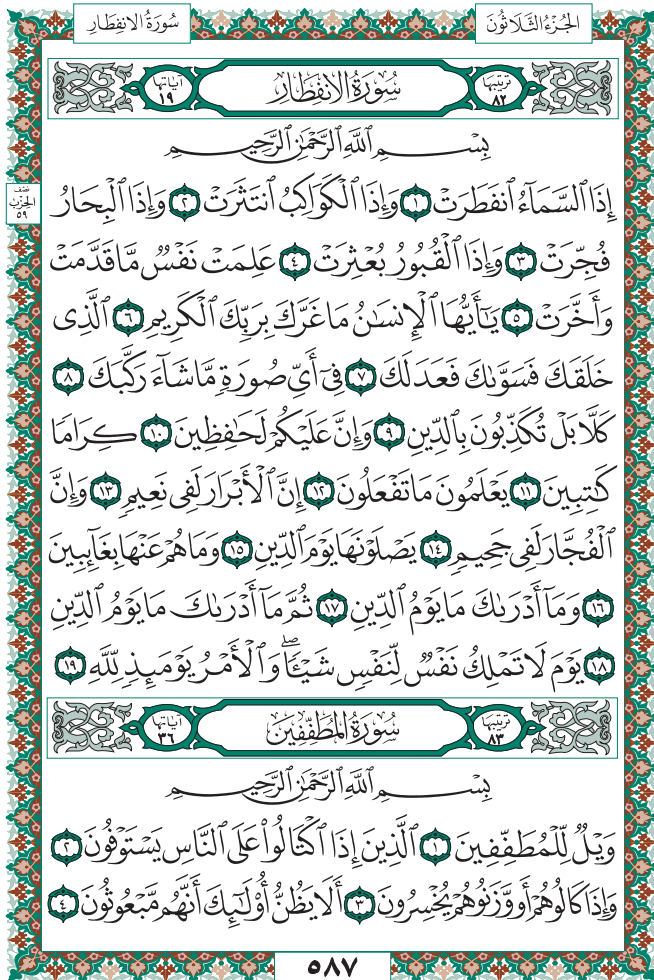 سُورَةُ الانفِطَارِ
الجُزْءُ الثَّلَاثُونَ
تَرتِيبُهَا ٨٢
سُورَةُ الانفِطَارِ
آيَاتُهَا ١٩
بِسْمِ ٱللَّهِ ٱلرَّحْمَٰنِ ٱلرَّحِيمِ
إِذَا ٱلسَّمَآءُ ٱنفَطَرَتْ ١ وَإِذَا ٱلْكَوَاكِبُ ٱنتَثَرَتْ ٢ وَإِذَا ٱلْبِحَارُ
نصف الحزب ٥٩
فُجِّرَتْ ٣ وَإِذَا ٱلْقُبُورُ بُعْثِرَتْ ٤ عَلِمَتْ نَفْسٌ مَّا قَدَّمَتْ
وَأَخَّرَتْ ٥ يَٰٓأَيُّهَا ٱلْإِنسَٰنُ مَا غَرَّكَ بِرَبِّكَ ٱلْكَرِيمِ ٦ ٱلَّذِى
خَلَقَكَ فَسَوَّىٰكَ فَعَدَلَكَ ٧ فِىٓ أَىِّ صُورَةٍ مَّا شَآءَ رَكَّبَكَ ٨
كَلَّا بَلْ تُكَذِّبُونَ بِٱلدِّينِ ٩ وَإِنَّ عَلَيْكُمْ لَحَٰفِظِينَ ١٠ كِرَامًا
كَٰتِبِينَ ١١ يَعْلَمُونَ مَا تَفْعَلُونَ ١٢ إِنَّ ٱلْأَبْرَارَ لَفِى نَعِيمٍ ١٣ وَإِنَّ
ٱلْفُجَّارَ لَفِى جَحِيمٍ ١٤ يَصْلَوْنَهَا يَوْمَ ٱلدِّينِ ١٥ وَمَا هُمْ عَنْهَا بِغَآئِبِينَ
١٦ وَمَآ أَدْرَىٰكَ مَا يَوْمُ ٱلدِّينِ ١٧ ثُمَّ مَآ أَدْرَىٰكَ مَا يَوْمُ ٱلدِّينِ
١٨ يَوْمَ لَا تَمْلِكُ نَفْسٌ لِّنَفْسٍ شَيْـًٔا ۖ وَٱلْأَمْرُ يَوْمَئِذٍ لِّلَّهِ ١٩
تَرتِيبُهَا ٨٣
سُورَةُ المُطَفِّفِينَ
آيَاتُهَا ٣٦
بِسْمِ ٱللَّهِ ٱلرَّحْمَٰنِ ٱلرَّحِيمِ
وَيْلٌ لِّلْمُطَفِّفِينَ ١ ٱلَّذِينَ إِذَا ٱكْتَالُوا۟ عَلَى ٱلنَّاسِ يَسْتَوْفُونَ ٢
وَإِذَا كَالُوهُمْ أَو وَّزَنُوهُمْ يُخْسِرُونَ ٣ أَلَا يَظُنُّ أُو۟لَٰٓئِكَ أَنَّهُم مَّبْعُوثُونَ ٤
٥٨٧